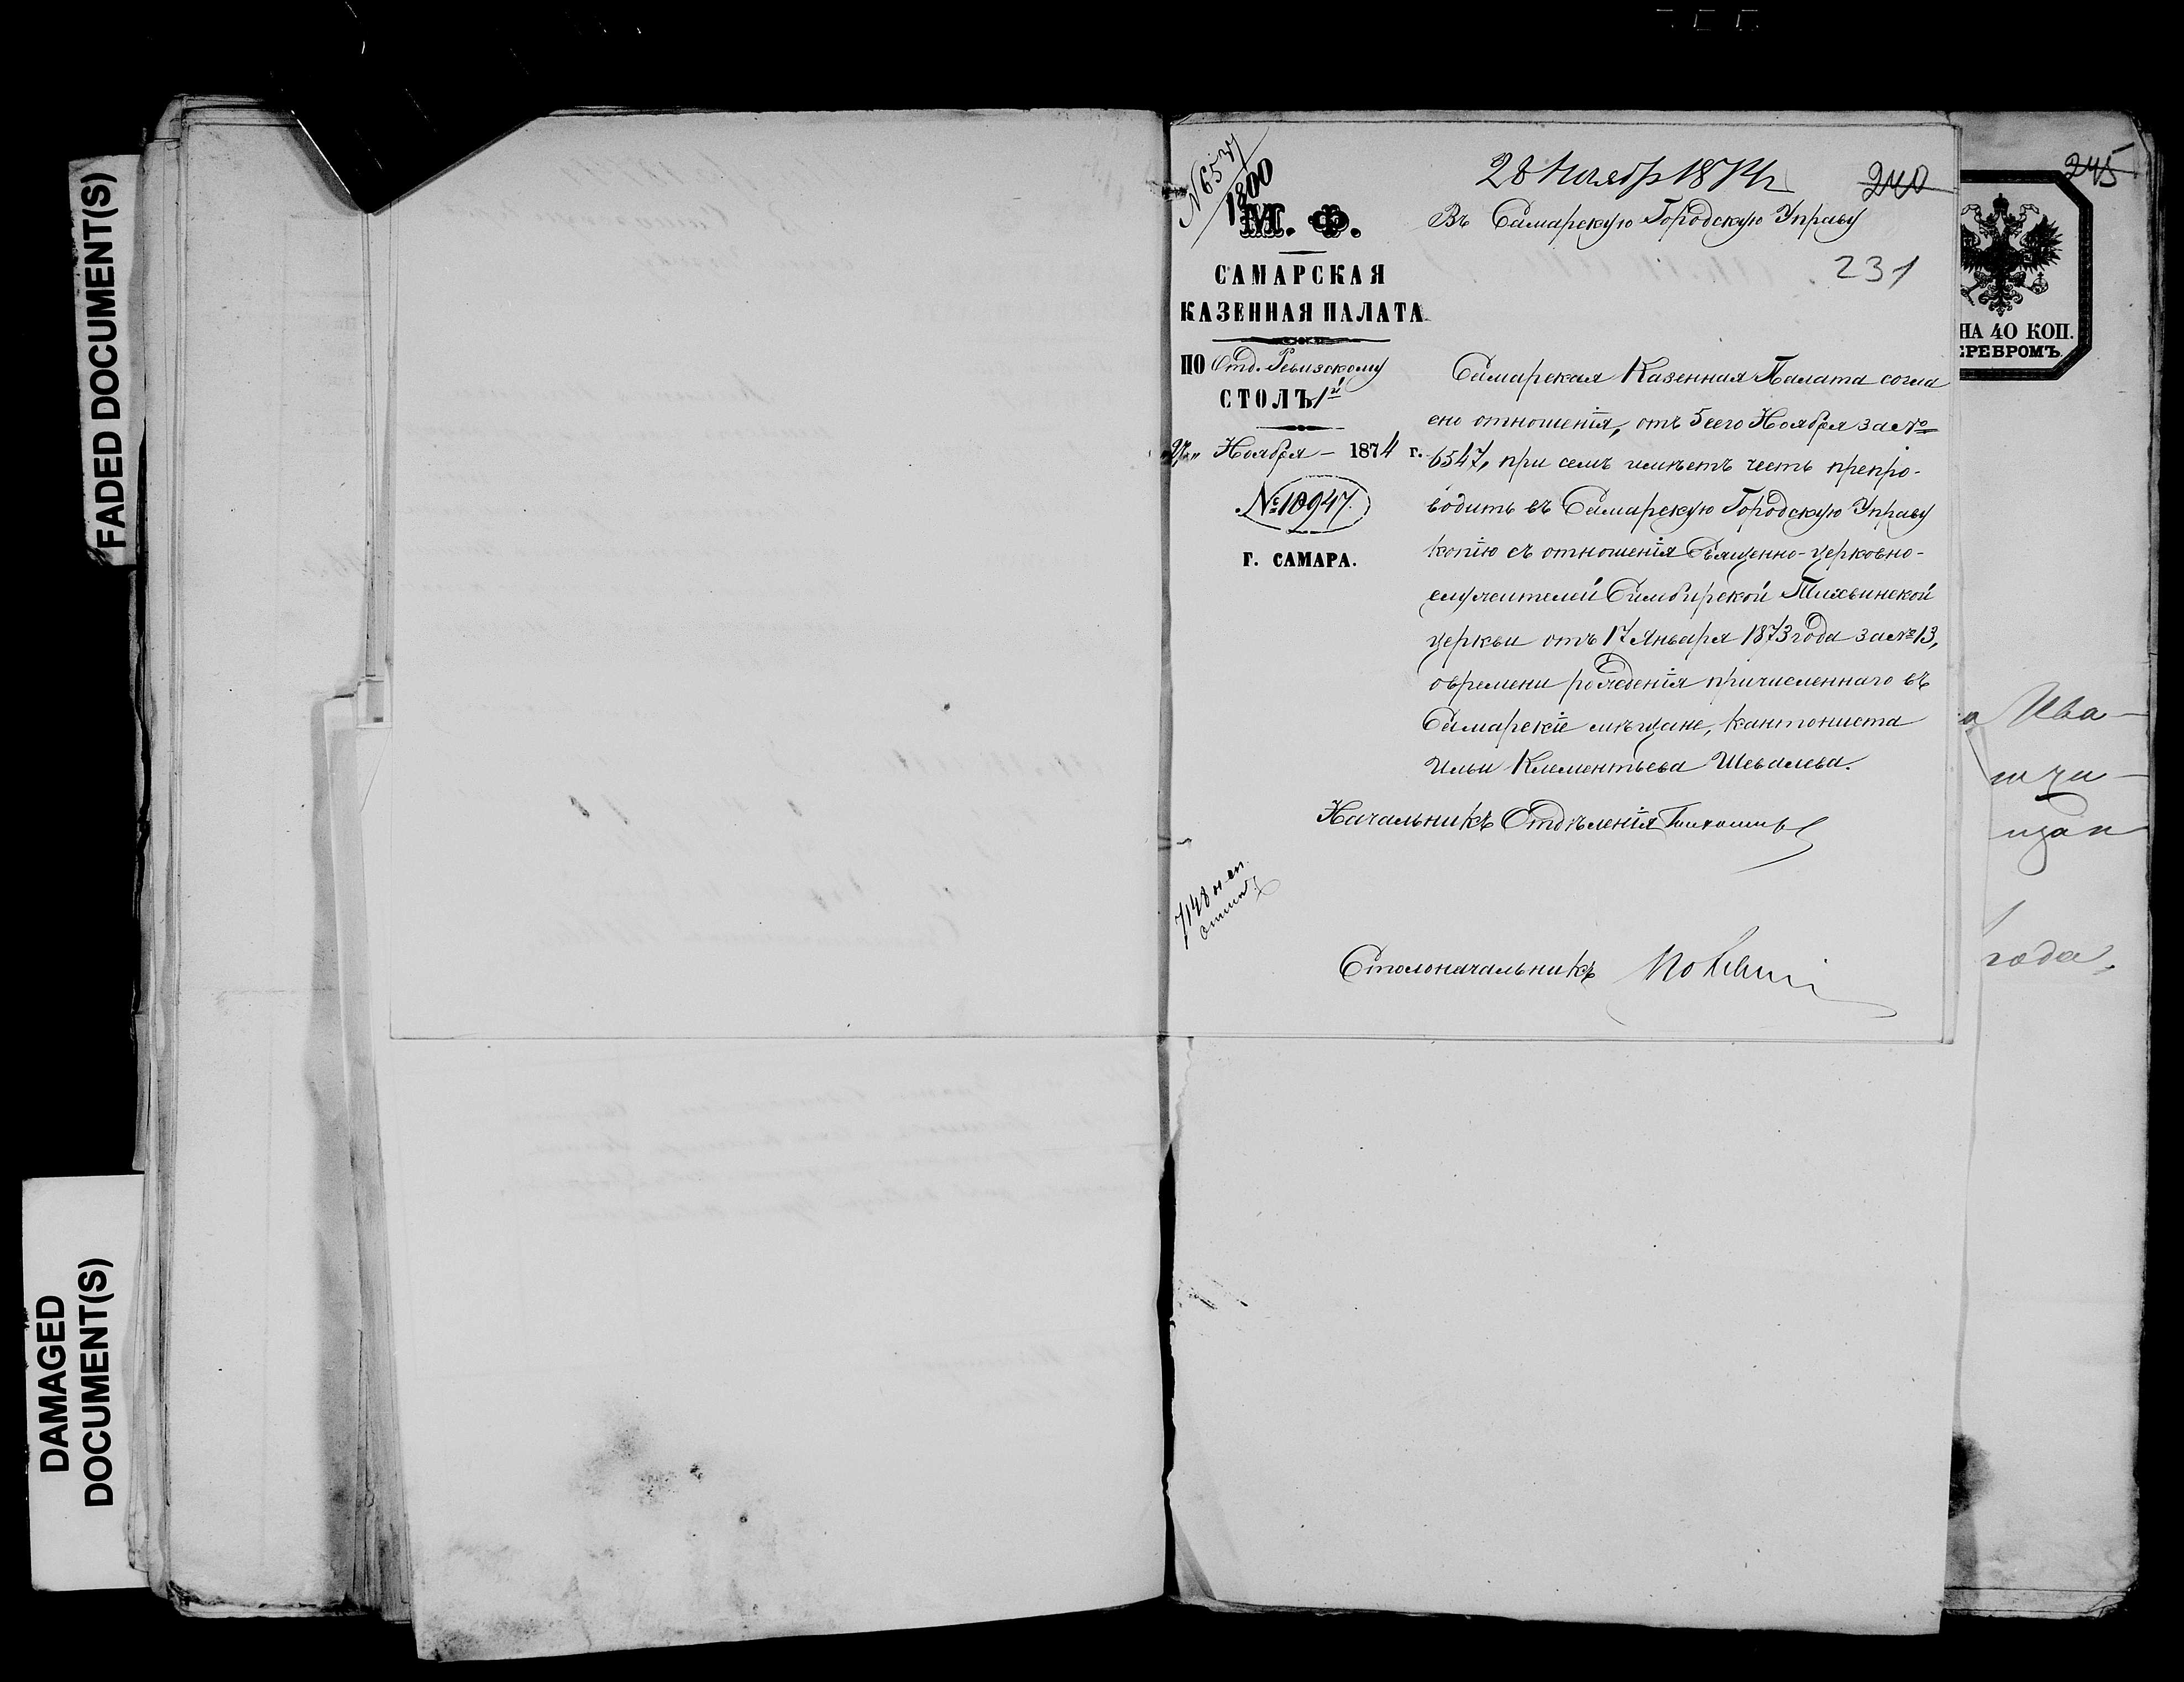 FADED DOCUMENT(S)
DAMAGED
DOCUMENT(S)
№ 6537
1800
М. Ф.
САМАРСКАЯ
КАЗЕННАЯ ПАЛАТА
ПО Отд. Ревизскому
СТОЛЪ 1й
"27" Ноября 1874 г.
№ 10947.
Г. САМАРА.
28 Ноября 1874 г.
240
Въ Самарскую Городскую Управу
231
Самарская Казенная Палата согла
сно отношенія, отъ 5 сего Ноября за №
6547, при семъ имѣетъ честь препро-
водить въ Самарскую Городскую Управу
копію съ отношенія Священно-церковно-
служителей Симбирской Тихвинской
церкви отъ 17 Января 1873 года за № 13,
о времени рожденія причисленнаго въ
Самарскіе мѣщане, кантониста
Ильи Клементьева Шевалева.
Начальникъ Отдѣленія
7148
Столоначальникъ
245
НА 40 КОП.
ЕРЕБРОМЪ.
а Ива-
года,